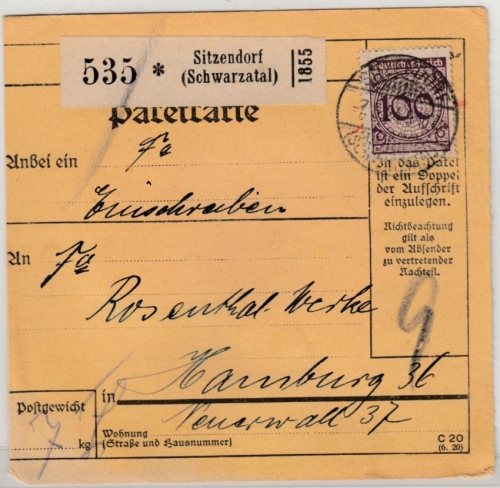 535 * Sitzendorf
(Schwarzatal)
1855
Deutsches Reich
100
Paketkarte
Anbei ein Fa
Einschreiben
In das Paket
ist ein Doppel
der Aufschrift
einzulegen.
Nichtbeachtung
gilt als
vom Absender
zu vertretender
Nachteil.
An Fa
Rosenthal-Werke
9
in Hamburg 36
Neuerwall 37
Postgewicht
7 kg
Wohnung
(Straße und Hausnummer)
C 20
(6. 20)